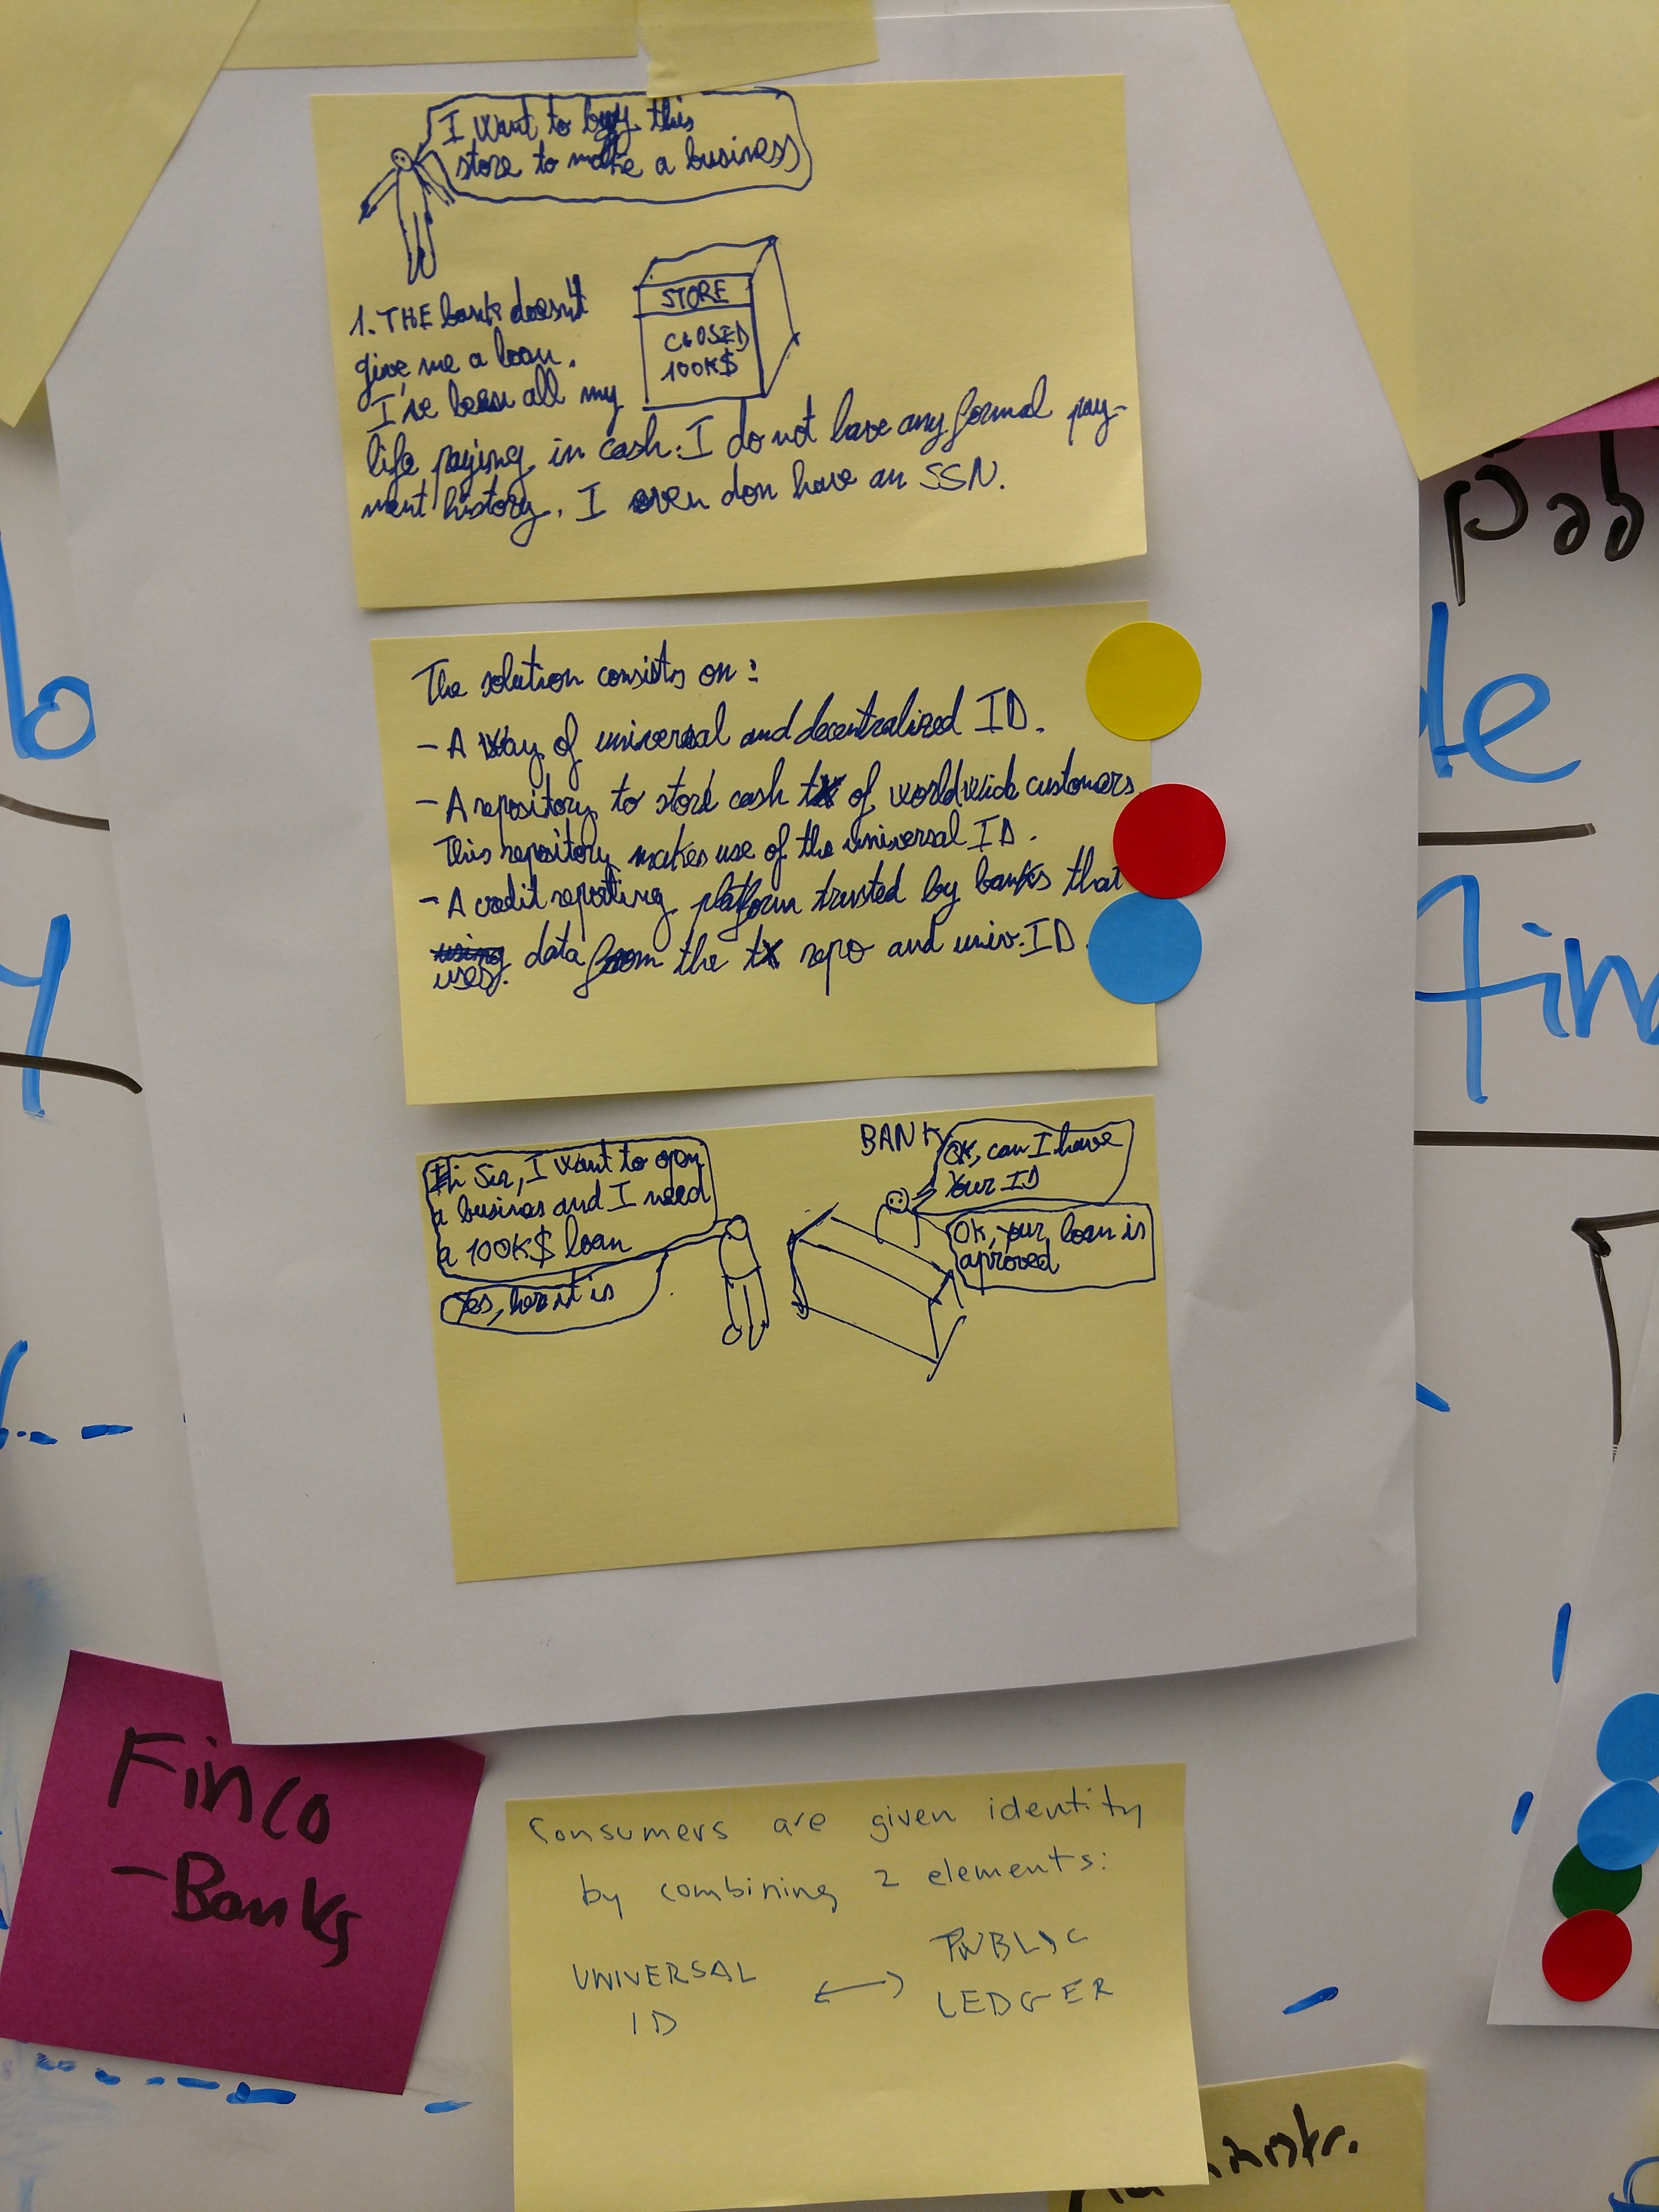 I want to buy this
store to make a business
STORE
CLOSED
100K$
1. THE bank doesn't
give me a loan.
I've been all my
life paying in cash. I do not have any formal pay-
ment history. I even don have an SSN.
The solution consists on:
- A way of universal and decentralized ID.
- A repository to store cash tx of worldwide customers.
This repository makes use of the universal ID.
- A credit reporting platform trusted by banks that
using data from the tx repo and univ. ID.
uses.
BANK
Hi Sir, I want to open
a business and I need
a 100K$ loan
OK, can I have
your ID
Yes, here it is
OK, your loan is
aproved
Finco
- Banks
Consumers are given identity
by combining 2 elements:
UNIVERSAL
ID
PUBLIC
LEDGER